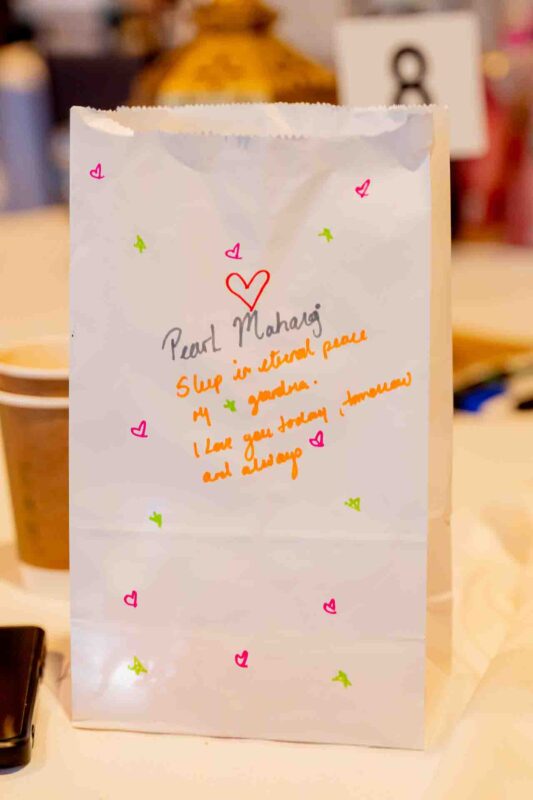 8
Pearl Maharaj
Sleep in eternal peace
my grandma.
I Love you today, tomorrow
and always